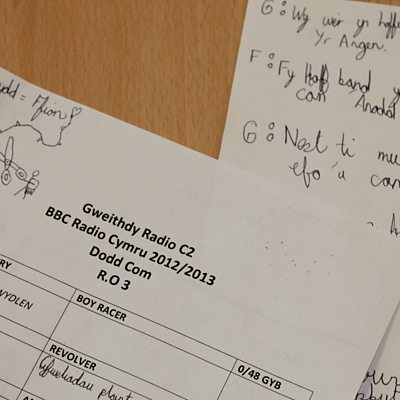 G: Wy wir yn hoffi
Yr Angen.
F: Fy Hoff band y
can Anadd
G: Nest ti mu
efo'u can
= Ffion
Gweithdy Radio C2
BBC Radio Cymru 2012/2013
Dodd Com
R.O 3
RY
BOY RACER
WYDLEN
REVOLVER
0/48 GYB
plant